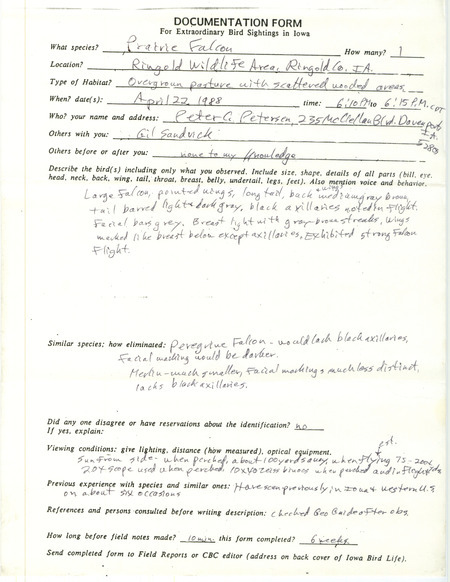 DOCUMENTATION FORM
For Extraordinary Bird Sightings in Iowa
What species? Prairie Falcon How many? 1
Location? Ringold Wildlife Area, Ringold Co. IA.
Type of Habitat? Overgrown pasture with scattered wooded areas
When? date(s): April 22, 1988 time: 6:10 PM to 6:15 P.M. CDT
Who? your name and address: Peter C. Petersen 235 McClellan Blvd. Davenport
IA.
52803
Others with you: Gil Sandvick
Others before or after you: none to my knowledge
Describe the bird(s) including only what you observed. Include size, shape, details of all parts (bill, eye,
head, neck, back, wing, tail, throat, breast, belly, undertail, legs, feet). Also mention voice and behavior.
Large Falcon, pointed wings, long tail, back + wings medium gray brown,
tail barred light + dark gray, black axillaries noted in flight.
Facial bars grey. Breast light with gray brown streaks, wings
marked like breast below except axillaries, Exhibited strong Falcon
flight.
Similar species; how eliminated: Peregrine Falcon - would lack black axillaries,
Facial marking would be darker.
Merlin - much smaller, Facial markings much less distinct,
lacks black axillaries.
Did any one disagree or have reservations about the identification? no
If yes, explain:
Viewing conditions; give lighting, distance (how measured), optical equipment.
est.
Sun from side - when perched, about 100 yards away, when flying 75-200x
20x scope used when perched 10x40 Zeiss binocs when perched and in flight
Previous experience with species and similar ones: Have seen previously in Iowa + Western U.S.
on about six occasions
References and persons consulted before writing description: checked Geo Guide after obs.
How long before field notes made? 10 min. this form completed? 6 weeks
Send completed form to Field Reports or CBC editor (address on back cover of Iowa Bird Life).